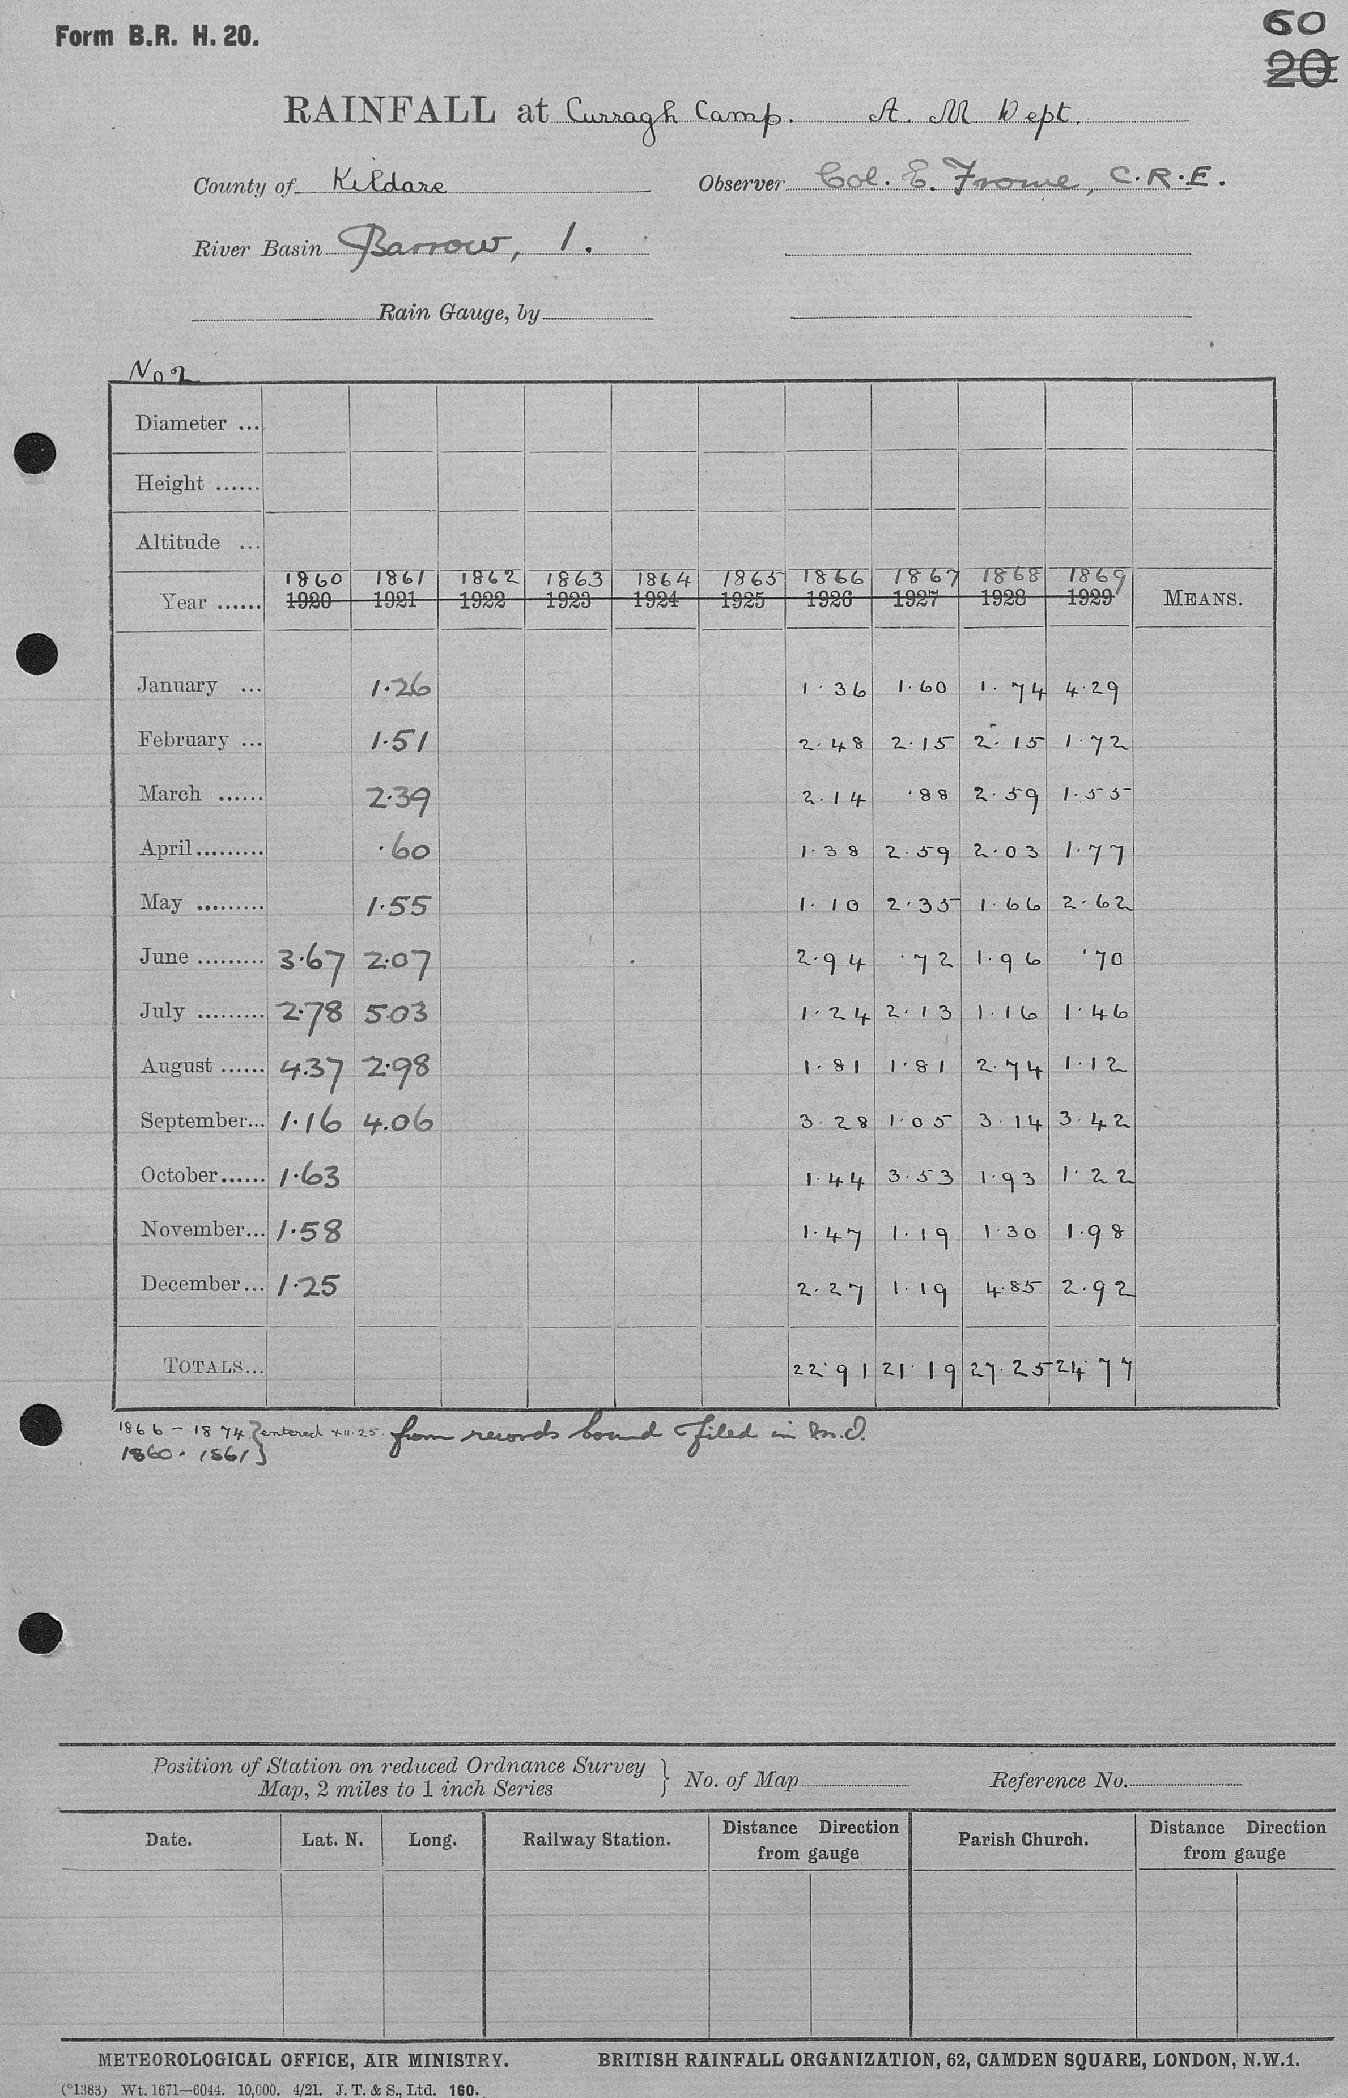 Form B.R. H. 20.
60
20
RAINFALL at Curragh Camp. A. M Dept.
County of Kildare Observer Col. E. Frome, C.R.E.
River Basin Barrow, 1.
Rain Gauge, by
No 2
Diameter ...
Height ......
Altitude ...
1860 1861 1862 1863 1864 1865 1866 1867 1868 1869
Year ...... 1920 1921 1922 1923 1924 1925 1926 1927 1928 1929 MEANS.
January ... 1.26 1.36 1.60 1.74 4.29
February ... 1.51 2.48 2.15 2.15 1.72
March ...... 2.39 2.14 .88 2.59 1.55
April......... .60 1.38 2.59 2.03 1.77
May ......... 1.55 1.10 2.35 1.66 2.62
June ......... 3.67 2.07 2.94 .72 1.96 .70
July ......... 2.78 5.03 1.24 2.13 1.16 1.46
August ...... 4.37 2.98 1.81 1.81 2.74 1.12
September... 1.16 4.06 3.28 1.05 3.14 3.42
October...... 1.63 1.44 3.53 1.93 1.22
November... 1.58 1.47 1.19 1.30 1.98
December... 1.25 2.27 1.19 4.85 2.92
TOTALS... 22.91 21.19 27.25 24.77
1866 - 1874 } entered from records bound & filed in M.O.
1860. 1861 }
Position of Station on reduced Ordnance Survey
Map, 2 miles to 1 inch Series } No. of Map Reference No.
Date. Lat. N. Long. Railway Station. Distance Direction from gauge Parish Church. Distance Direction from gauge
METEOROLOGICAL OFFICE, AIR MINISTRY. BRITISH RAINFALL ORGANIZATION, 62, CAMDEN SQUARE, LONDON, N.W.1.
(*1383) Wt. 1671—6044. 10,000. 4/21. J. T. & S., Ltd. 160.